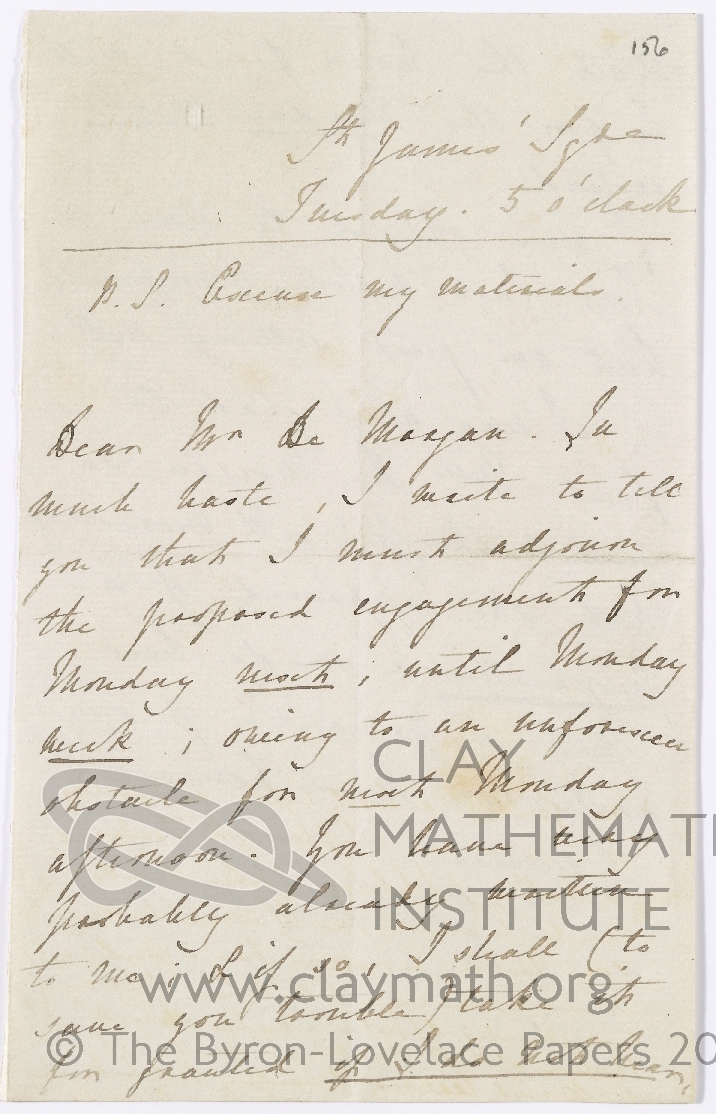 156
St James' Sqre
Tuesday. 5 o'clock
P.S. Excuse my materials.
Dear Mr De Morgan. In
much haste, I write to tell
you that I must adjourn
the proposed engagement for
Monday next, until Monday
week; owing to an unforeseen
obstacle for next Monday
afternoon. You have very
probably already written
to me; & if so, I shall (to
save you trouble) take it
for granted if I do not hear,
CLAY
MATHEMAT
INSTITUTE
www.claymath.org
© The Byron-Lovelace Papers 20